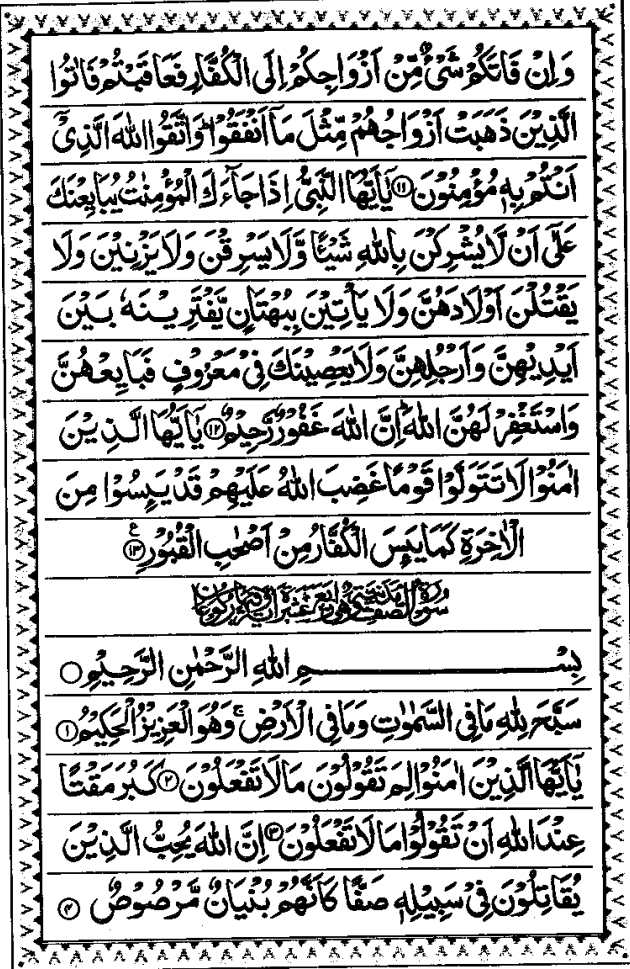 وَاِنْ فَاتَكُمْ شَیْءٌ مِّنْ اَزْوَاجِكُمْ اِلَى الْكُفَّارِ فَعَاقَبْتُمْ فَاٰتُوا
الَّذِیْنَ ذَهَبَتْ اَزْوَاجُهُمْ مِّثْلَ مَاۤ اَنْفَقُوْا ؕ وَاتَّقُوا اللّٰهَ الَّذِیْۤ
اَنْتُمْ بِهٖ مُؤْمِنُوْنَ ۱۱ یٰۤاَیُّهَا النَّبِیُّ اِذَا جَآءَكَ الْمُؤْمِنٰتُ یُبَایِعْنَكَ
عَلٰۤى اَنْ لَّا یُشْرِكْنَ بِاللّٰهِ شَیْـًٔا وَّلَا یَسْرِقْنَ وَلَا یَزْنِیْنَ وَلَا
یَقْتُلْنَ اَوْلَادَهُنَّ وَلَا یَاْتِیْنَ بِبُهْتَانٍ یَّفْتَرِیْنَهٗ بَیْنَ
اَیْدِیْهِنَّ وَاَرْجُلِهِنَّ وَلَا یَعْصِیْنَكَ فِیْ مَعْرُوْفٍ فَبَایِعْهُنَّ
وَاسْتَغْفِرْ لَهُنَّ اللّٰهَ ؕ اِنَّ اللّٰهَ غَفُوْرٌ رَّحِیْمٌ ۱۲ یٰۤاَیُّهَا الَّذِیْنَ
اٰمَنُوْا لَا تَتَوَلَّوْا قَوْمًا غَضِبَ اللّٰهُ عَلَیْهِمْ قَدْ یَىِٕسُوْا مِنَ
الْاٰخِرَةِ كَمَا یَىِٕسَ الْكُفَّارُ مِنْ اَصْحٰبِ الْقُبُوْرِ ۱۳ ع
سُوْرَةُ الصَّفِّ مَدَنِیَّةٌ
بِسْمِ اللّٰهِ الرَّحْمٰنِ الرَّحِیْمِ
سَبَّحَ لِلّٰهِ مَا فِی السَّمٰوٰتِ وَمَا فِی الْاَرْضِ ۚ وَهُوَ الْعَزِیْزُ الْحَكِیْمُ ۱
یٰۤاَیُّهَا الَّذِیْنَ اٰمَنُوْا لِمَ تَقُوْلُوْنَ مَا لَا تَفْعَلُوْنَ ۲ كَبُرَ مَقْتًا
عِنْدَ اللّٰهِ اَنْ تَقُوْلُوْا مَا لَا تَفْعَلُوْنَ ۳ اِنَّ اللّٰهَ یُحِبُّ الَّذِیْنَ
یُقَاتِلُوْنَ فِیْ سَبِیْلِهٖ صَفًّا كَاَنَّهُمْ بُنْیَانٌ مَّرْصُوْصٌ ۴